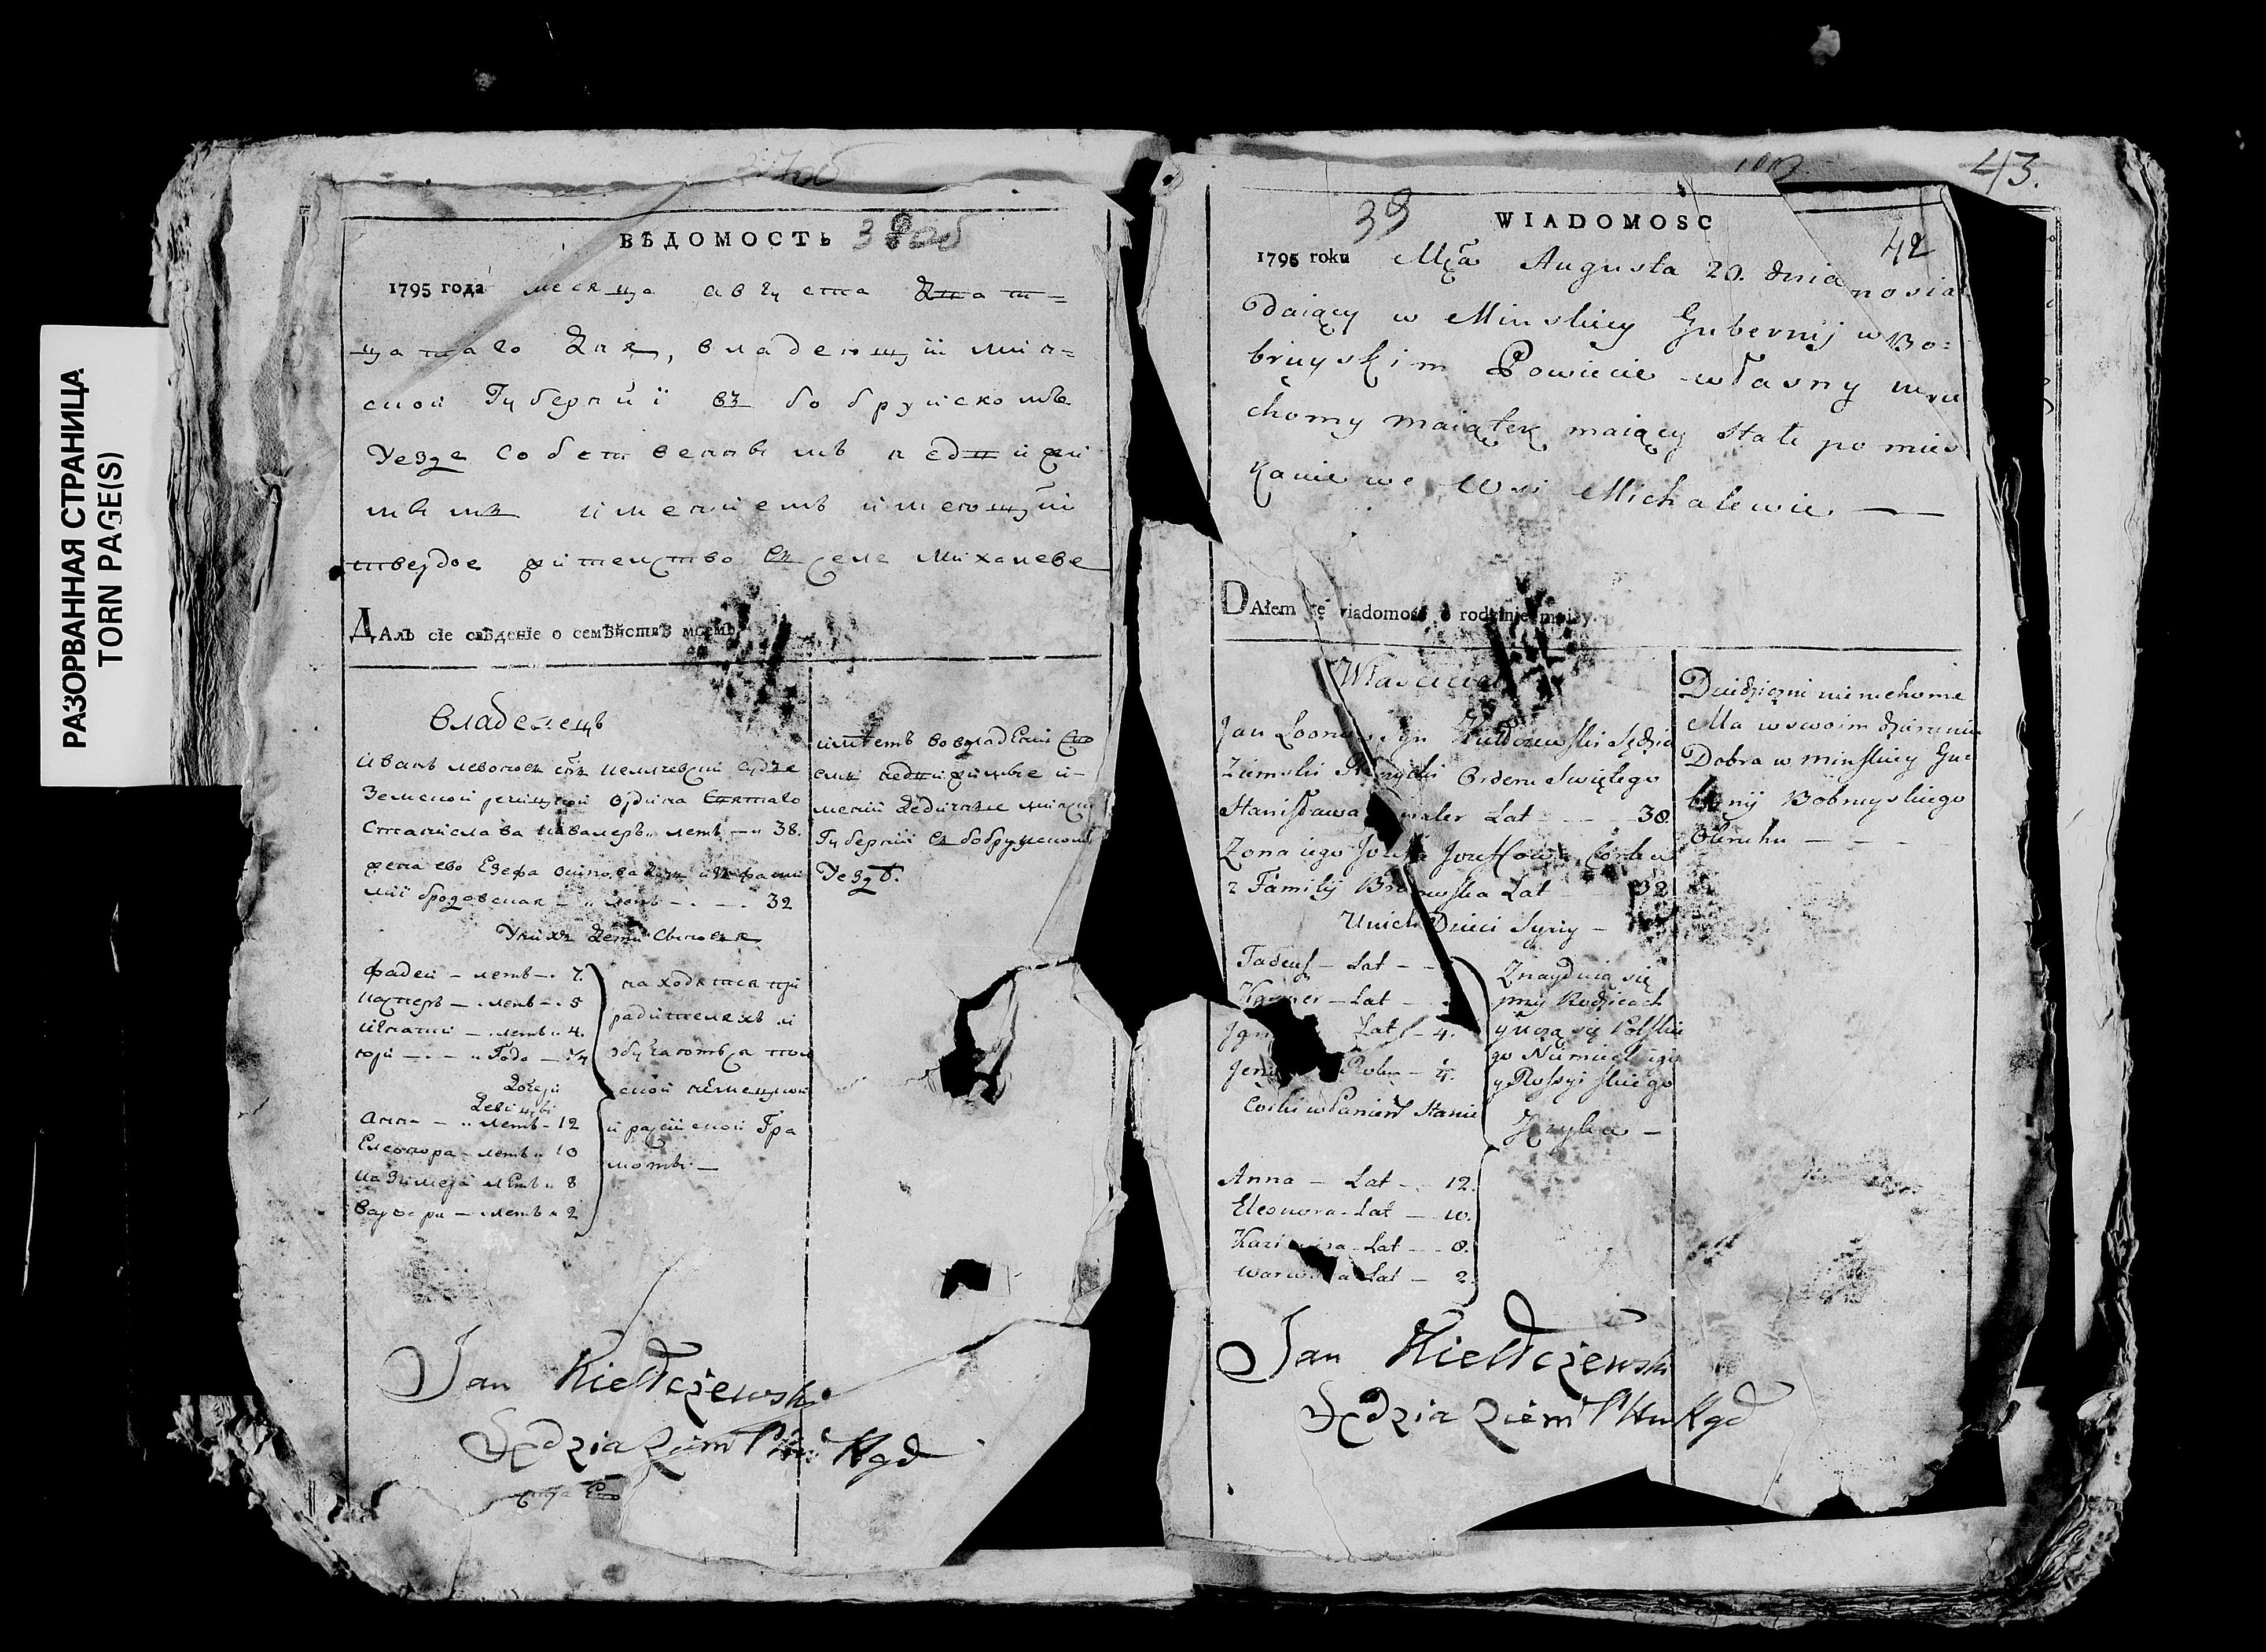 РАЗОРВАННАЯ СТРАНИЦА
TORN PAGE(S)
ВѢДОМОСТЬ 38об
1795 года месяца августа Дват=
цатаго Дня, владеющїй мин=
ской Губернїи въ бобруйскомъ
Уезде Собственнымъ недвижи
мымъ именіемъ имеющїй
твердое жителство въ селе Михалеве
ДАлъ сїе свѣденїе о семѣйствѣ моемъ
Владелецъ
Иванъ левоновъ сынъ келчевский судья
Земской речицкой Ордина Святаго
Станислава кавалеръ летъ — 38.
жена ево Езефа
бродовская — летъ — 32
У них дети Сыновья
фадей — летъ — 7.
касперъ — летъ — 5
игнатий — летъ — 4.
юри — Годо — 1/4
Дочери
Девицы
Анна — летъ — 12
Елеонора — летъ 10
казимера летъ 8
варвара — летъ 2
находятся при
радителяхъ и
обучаются пол
ской немецкой
и расийской Гра
моты —
имѣетъ во владении сво
емъ недвижимые и-
мении Дедичные минской
Губернии въ бобруйскомъ
Уездѣ.
Jan Kiełczewski
Sędzia Ziem Rgd
43.
39
WIADOMOSC
42
1795 roku Mca Augusta 20. dnia posia
daiący w Minskiey Gubernij w Bo=
bruyskim Powiecie własny nieru
chomy maiątek maiący stałe pomies
kanie we Wsi Michalewie. —
DAłem tę wiadomość o rodzinie moiey.
Właściciel
Jan Leonow Syn Kiełczewski Sędzia
Ziemski Rzeczycki Orderu Swiętego
Stanisława Kawaler Lat — 38.
Zona iego Jozefa Jozefowa Corka
z Familij Brodowska Lat 32
U nich Dzieci Syny —
Tadeusz — Lat —
Kasper — Lat —
Lat — 4.
Roku — 1/4.
Corki w Panieńs Stanie
Anna — Lat — 12.
Eleonora — Lat — 10.
Kazimira — Lat — 8.
Warwara Lat — 2.
Znayduią się
przy Rodzicach
y uczą się Polskie
go Niemieckiego
y Rossyiskiego
Języka —
Dziedziczni nieruchome
Ma w swoim dzierzeniu
Dobra w minskiey Gu=
bernij Bobruyskiego
Okruhu —
Jan Kiełczewski
Sędzia Ziem Rgd